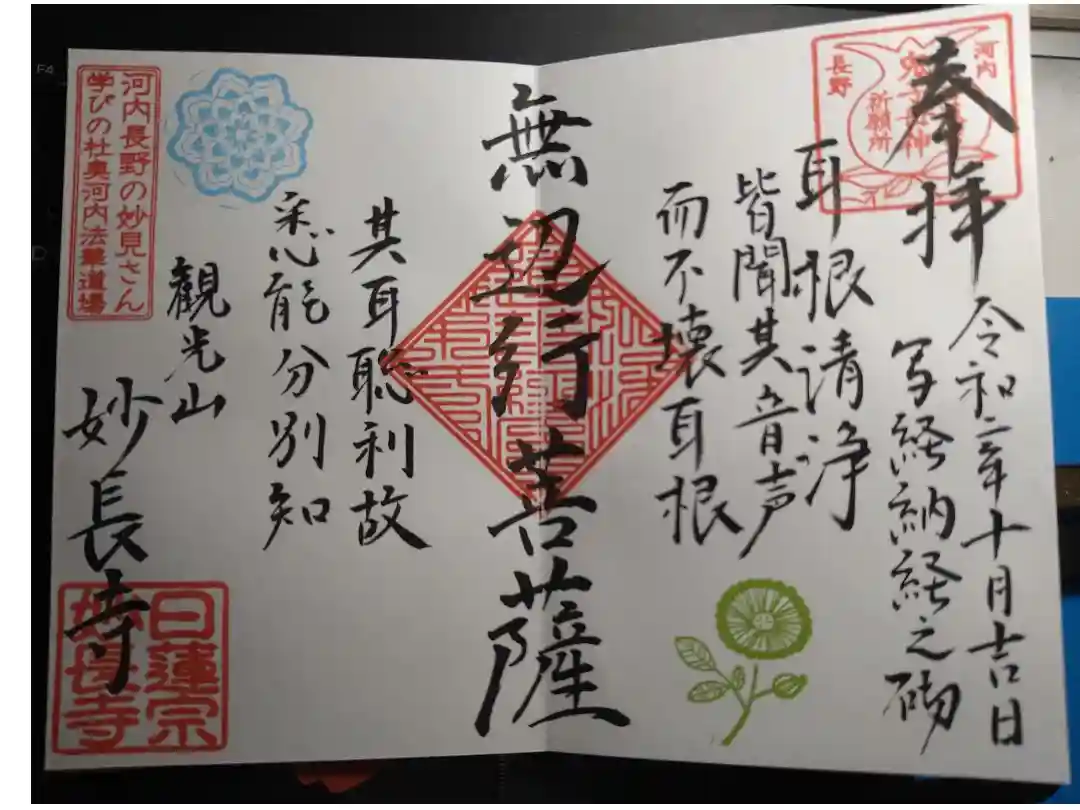 奉拝
河内
長野
祈願所
令和二年十月吉日
写経納経之砌
耳根清浄
皆聞其音声
而不壊耳根
無辺行菩薩
其耳聡利故
悉能分別知
観光山
妙長寺
河内長野の妙見さん
学びの杜奥河内法華道場
日蓮宗
妙長寺
F4
D